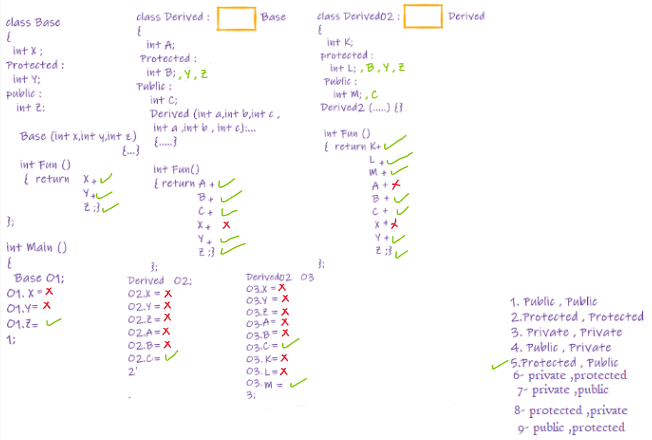 class Base
{
int X ;
Protected :
int Y;
public :
int Z;
Base (int x,int y,int z)
{...}
int Fun ()
{ return X+
Y+
Z ;}
};
int Main ()
{
Base O1;
O1. X =
O1.Y=
O1.Z=
1;
class Derived : Base
{
int A;
Protected :
int B; , Y , Z
Public :
int C;
Derived (int a,int b,int c ,
int a ,int b , int c):...
{.....}
int Fun()
{ return A +
B +
C +
X+
Y +
Z ;}
};
Derived O2;
O2.X =
O2.Y =
O2.Z =
O2.A=
O2.B=
O2.C=
2'
.
class Derived02 : Derived
{
int K;
protected :
int L; , B , Y , Z
Public :
int M; , C
Derived2 (.....) {}
int Fun ()
{ return K+
L +
M +
A +
B +
C +
X +
Y +
Z ;}
};
Derived02 O3
O3.X =
O3.Y =
O3.Z =
O3.A=
O3.B=
O3.C=
O3. K=
O3.L=
O3. M =
3;
1. Public , Public
2.Protected , Protected
3. Private , Private
4. Public , Private
5.Protected , Public
6- private ,protected
7- private ,public
8- protected ,private
9- public ,protected